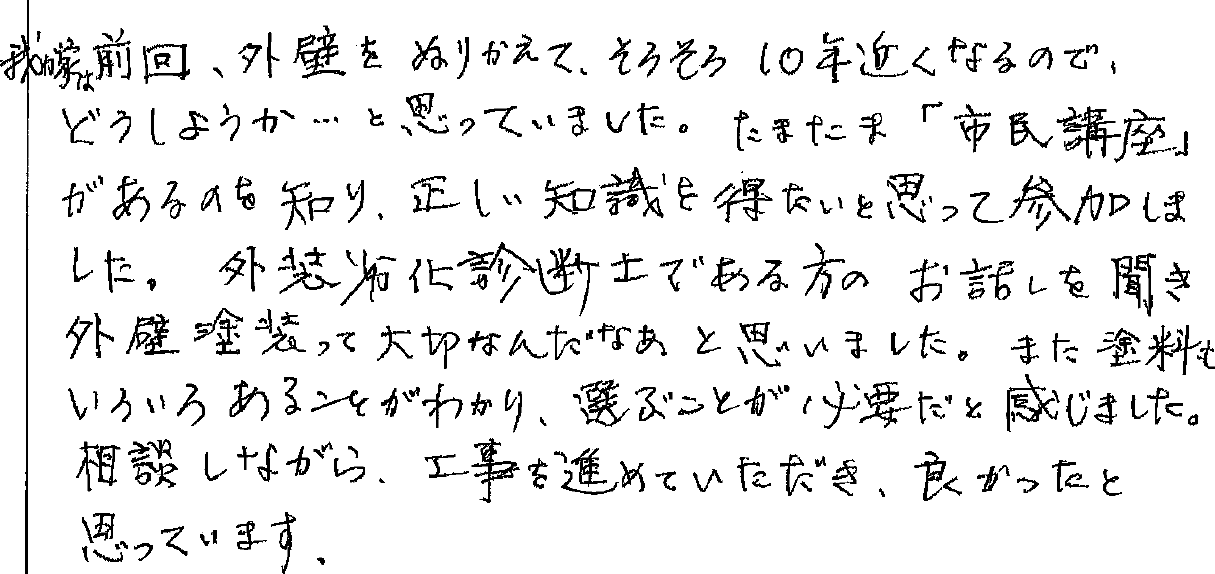 我が家は前回、外壁をぬりかえて、そろそろ10年近くなるので、
どうしようか…と思っていました。たまたま「市民講座」
があるのを知り、正しい知識を得たいと思って参加しま
した。外装劣化診断士である方のお話しを聞き
外壁塗装って大切なんだなあと思いました。また塗料も
いろいろあることがわかり、選ぶことが必要だと感じました。
相談しながら、工事を進めていただき、良かったと
思っています。